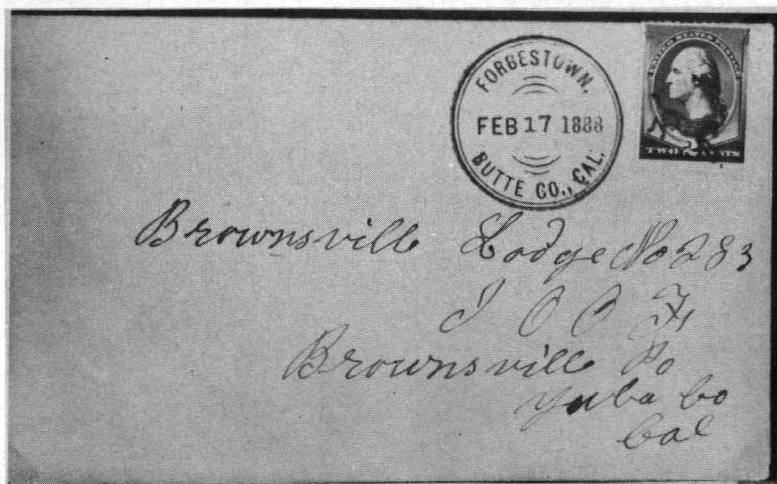 FORBESTOWN.
FEB 17 1888
BUTTE CO., CAL.
UNITED STATES POSTAGE
TWO 2 CENTS
Brownsville Lodge No 283
I O O F,
Brownsville Po
Yuba Co
Cal